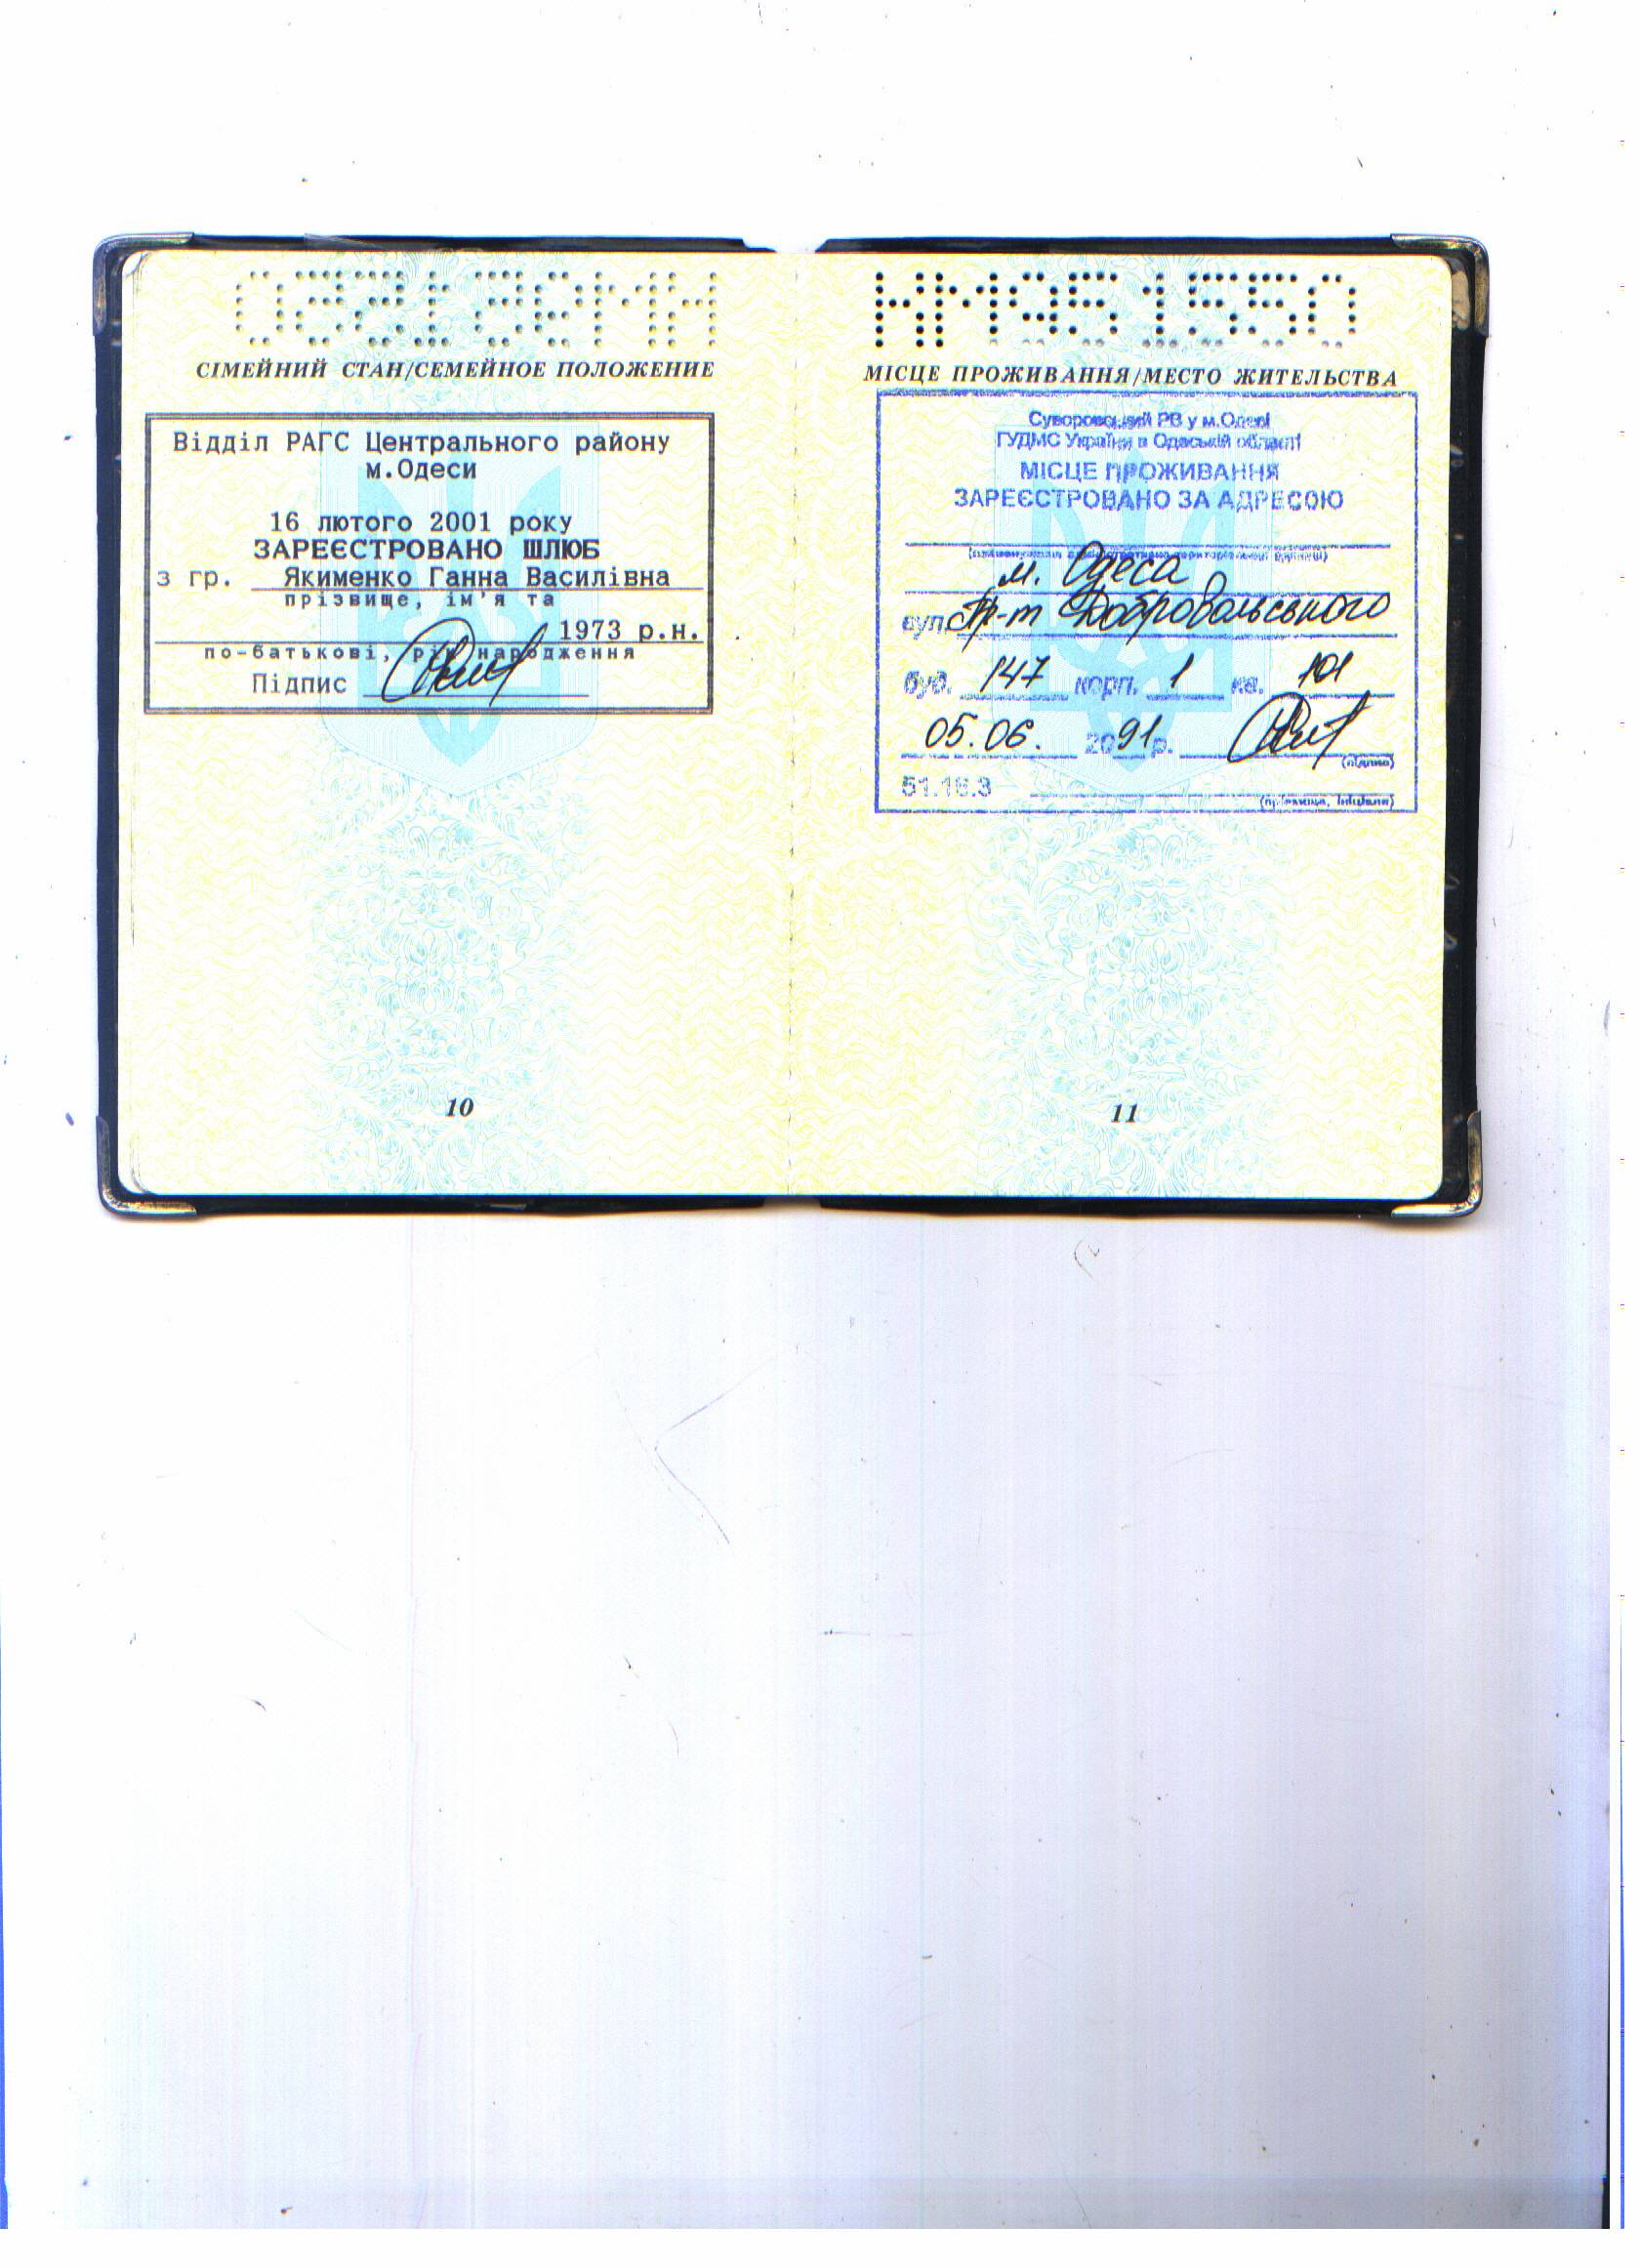 СІМЕЙНИЙ СТАН/СЕМЕЙНОЕ ПОЛОЖЕНИЕ
Відділ РАГС Центрального району
м.Одеси
16 лютого 2001 року
ЗАРЕЄСТРОВАНО ШЛЮБ
з гр. Якименко Ганна Василівна
прізвище, ім'я та
1973 р.н.
по-батькові, рік народження
Підпис
10
МІСЦЕ ПРОЖИВАННЯ/МЕСТО ЖИТЕЛЬСТВА
Суворовський РВ у м.Одесі
ГУДМС України в Одеській області
МІСЦЕ ПРОЖИВАННЯ
ЗАРЕЄСТРОВАНО ЗА АДРЕСОЮ
м. Одеса
вул. Пр-т Добровольського
буд. 147 корп. 1 кв. 101
05.06. 2091р.
(підпис)
51.16.3
(прізвище, ініціали)
11